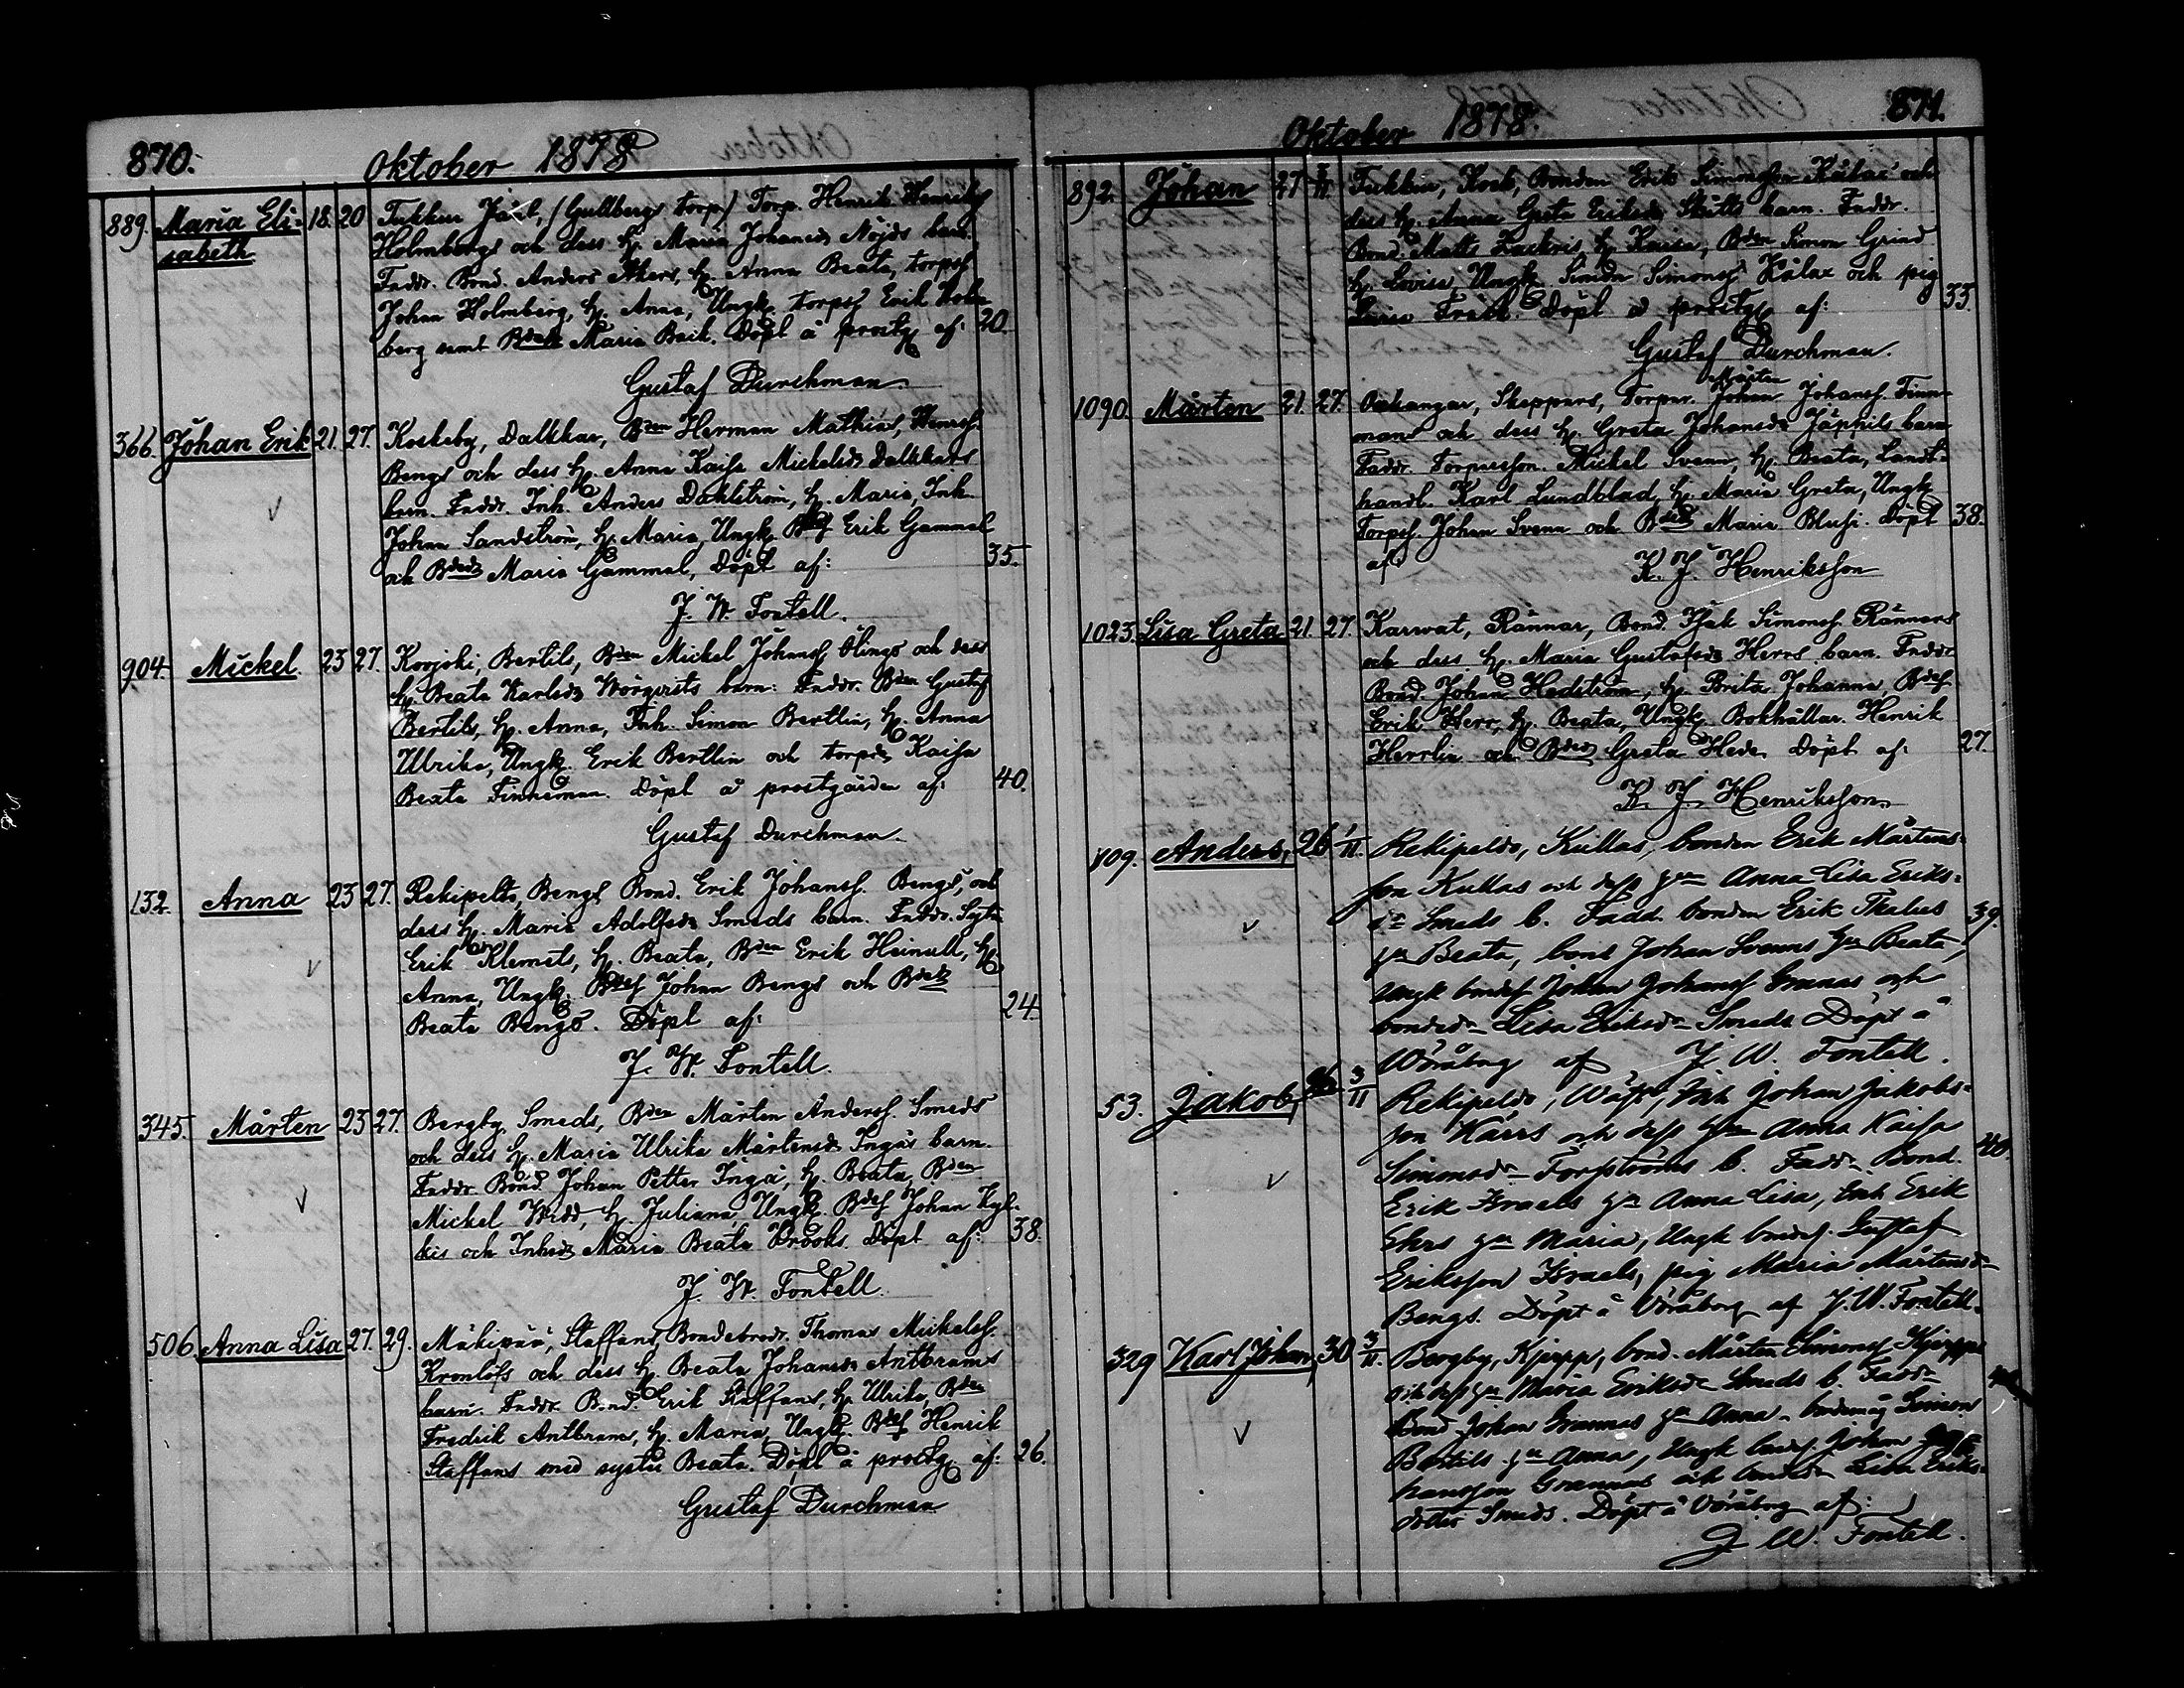 870.
Oktober 1878
889. Maria Eli= 18. 20 Tukkur Jäål, (Gullbergs torp) Torp. Henrik Henriks
sabeth Holmbergs och dess h. Maria Johansdr Nöjds barn.
Faddr. Bond. Anders Akers, h. Anna Beata, torpsf.
Johan Holmberg, h. Anna, Ungk. torpsf Erik Holm
berg samt Bdedr Maria Back. Döpt å prostg. af: 20
Gustaf Durchman.
366. Johan Erik 21. 27. Koskeby, Dalkkar, Bden Herman Mathias, Henrsf.
Bengs och dess h. Anna Kaisa Mickelsdr Dalkkars
barn. Faddr. Inh. Anders Dahlström, h. Maria, Inh.
Johan Sandström, h. Maria, Ungk. Erik Gammal
och Bdedr Maria Gammal, Döpt af: 35.
J. W. Fontell.
904. Mickel. 23 27. Kovjoki, Bertils, Bden Mickel Johansf. Ölings och dess
h. Beata Karlsdr barn: Faddr. Bden Gustaf
Bertils, h. Anna, Inh. Simon Bertlin, h. Anna
Ulrika, Ungk. Erik Bertlin och torpdr Kaisa
Beata Finneman. Döpt å prostgården af: 40.
Gustaf Durchman.
132. Anna 23 27. Rekipelto, Bengs, Bond. Erik Johansf. Bengs, och
dess h. Maria Adolfsdr Smeds barn. Faddr. Sytn
Erik Klemets, h. Beata, Bden Erik Heinull, h.
Anna, Ungk. Bdesf Johan Bengs och Bdedr
Beata Bengs. Döpt af: 24.
J. W. Fontell.
345. Mårten 23 27. Bergby, Smeds, Bden Mårten Andersf. Smeds
och dess h. Maria Ulrika Mårtensdr Ingås barn.
Faddr. Bond. Johan Petter Ingå, h. Beata, Bden
Mickel Widd, h. Juliana, Ungk. Bdesf Johan Kyl-
kis och Inhsdr Maria Beata Brooks. Döpt af: 38.
J. W. Fontell.
506. Anna Lisa 27. 29. Mäkipää, Staffans, Bondebrodr. Thomas Mickelsf.
Kronlöfs och dess h. Beata Johansdr Antbrams
barn. Faddr. Bond. Erik Staffans, h. Ulrika, Bden
Fredrik Antbrams, h. Maria, Ungk. Bdesf Henrik
Staffans med syster Beata. Döpt å prostg. af: 26.
Gustaf Durchman
871.
Oktober 1878.
892. Johan 27 3/11 Tukkur, Kock, Bonden Erik Simonsson Kålax och
dess h. Anna Greta Eriksdr barn. Faddr.
Bond. Matts Zachris, h. Kaisa, Bden Simon Grind
h. Lovisa, Ungk. Simon Simonsf Kålax och pig
Döpt å prostg. af: 33.
Gustaf Durchman.
1090. Mårten 21. 27. Oxkangar, Skeppars, Torpar. Johan Mårten Johansf. Finn-
mans och dess h. Greta Johansdr Jäppils barn
Faddr. Torparsson. Mickel Svenn, h. Beata, Landt-
handl. Karl Lundblad, h. Maria Greta, Ungk
Torpsf. Johan Svenn och Bdedr Maria Blusi. Döpt 38.
af: K. J. Henriksson
1023. Lisa Greta 21. 27. Karvat, Rännar, Bond. Isak Simonsf. Rännars
och dess h. Maria Gustafsdr Herrs barn. Faddr
Bond. Johan Hedström, h. Brita Johanna, Bdesf.
Erik Herr, h. Beata, Ungk. Bokhållar. Henrik
Herrlin och Bdedr Greta Heden Döpt af: 27.
K. J. Henriksson
109. Anders, 26 1/11. Rekipeldo, Kullas, bonden Erik Mårtens=
son Kullas och dess hu Anna Lisa Eriks=
dr Smeds b. Fadd. bonden Erik Thelus 39.
hu Beata, bond Johan Svenns hu Beata,
Ungk bondesf Johan Johansf Grannas och
bondedr Lisa Eriksdr Smeds Döpt å
Wöråborg af J. W. Fontell.
53. Jakob, 26 3/11 Rekipeldo, Wäst, Inh Johan Jakobs=
son Kärrs och dess hu Anna Kaisa
Simonsdr Forsströms b. Faddr Bond. 40.
Erik Israels hu Anna Lisa, Inh Erik
Ehrs hu Maria, Ungk bondesf. Gustaf
Eriksson Israels, pig Maria Mårtensdr
Bengs. Döpt å Vöråborg af J. W. Fontell.
329 Karl Johan, 30 3/11. Bergby, Kjerpp, bond. Mårten Simonsf Kjerpps
och dess hu Maria Eriksdr Smeds b. Faddr
Bond Johan Grannas hu Anna, bondemåg Simon
Bertils hu Anna, Ungk bondsf Johan
hansson Grannas och bondedr Lisa Eriks-
dotter Smeds. Döpt å Vöråborg af:
J W. Fontell.